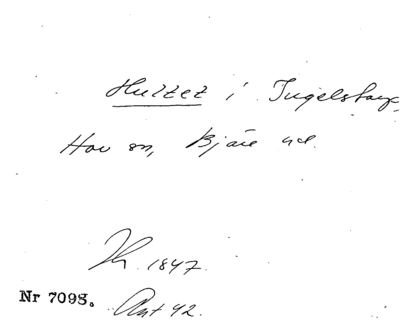 Hultet i Ingelstorp,
Hov sn, Bjäre hd.
Th. 1847.
Nr 7098. Ant 42.